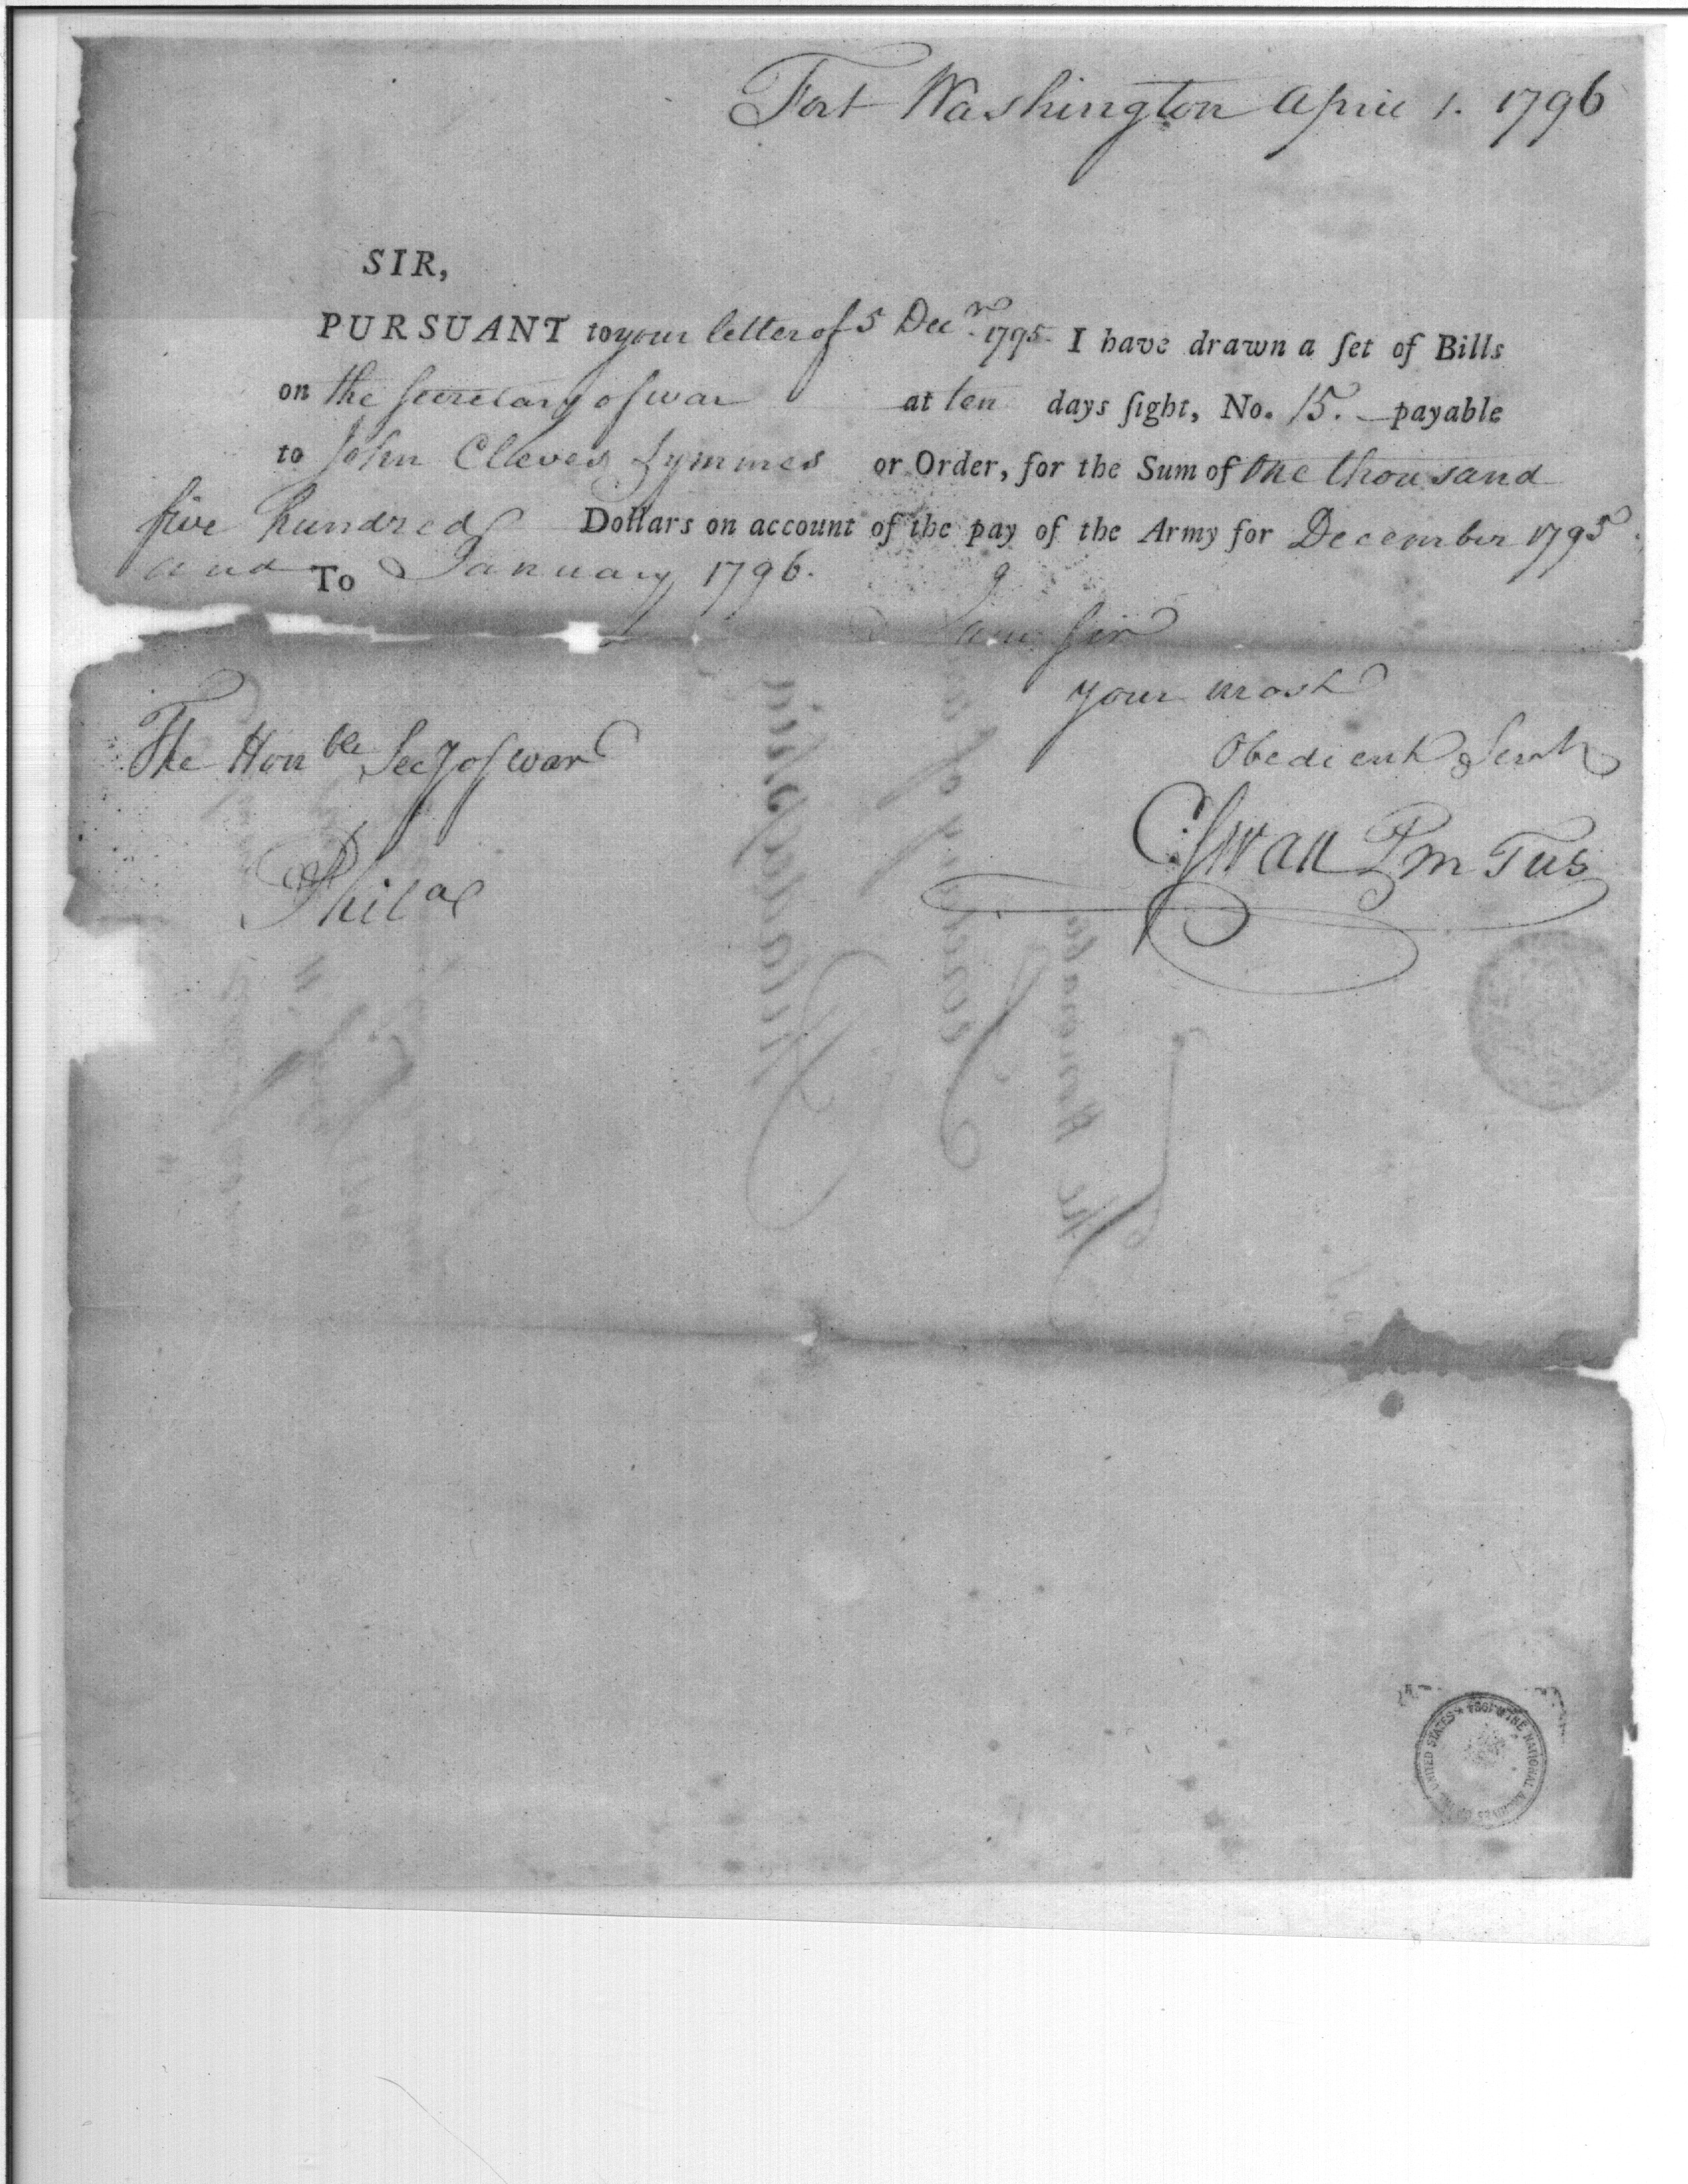 Fort Washington April 1. 1796
SIR,
PURSUANT to your letter of 5 Decr. 1795. I have drawn a ſet of Bills
on the Secretary of war at ten days ſight, No. 15. payable
to John Cleves Symmes or Order, for the Sum of One thousand
five hundred Dollars on account of the pay of the Army for December 1795
and January 1796.
To
I am Sir
your most
The Honble Secy of war
Obedient Servt
C Swan P m T u s
Phila
THE NATIONAL ARCHIVES OF THE UNITED STATES